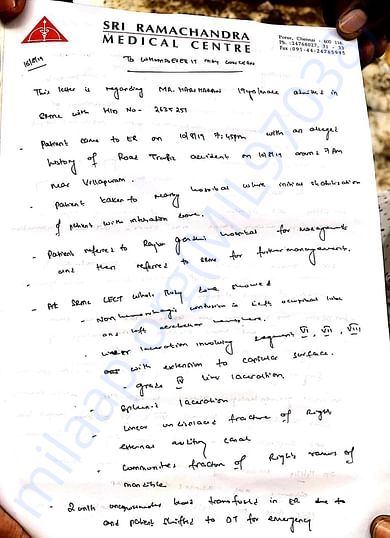 SRI RAMACHANDRA
MEDICAL CENTRE
Porur, Chennai - 600 116.
Ph. : 24768027, 31 - 33
Fax : 091-44-24765995
10/8/19
TO WHOMSOEVER IT MAY CONCERN
This letter is regarding MR. HARIHARAN 19yrs/male admitted in
SRMC with HID No - 2635251
- Patient came to ER on 10/8/19 7:45pm with an alleged
history of Road Traffic accident on 10/8/19 around 7 AM
near Villupuram.
- Patient taken to nearby hospital where initial stabilisation
of patient with intubation done.
- Patient referred to Rajiv Gandhi hospital for management
and then referred to SRMC for further management.
- At SRMC CECT whole Body done showed
- Non hemorrhagic contusion in left occipital lobe
and left cerebellar hemisphere.
- Liver laceration involving segment VI, VII, VIII
with extension to capsular surface.
- grade IV liver laceration.
- Splenic laceration
- Linear undisplaced fracture of Right
external auditory canal
- Comminuted fracture of Right ramus of
mandible
- 2 units blood transfused in ER due to
and patient shifted to OT for emergency
milaap.org(MIL97030